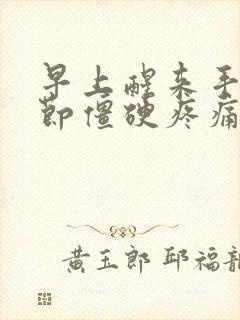 早上醒来手
节僵硬疼痛
黄玉郎 邱福龍